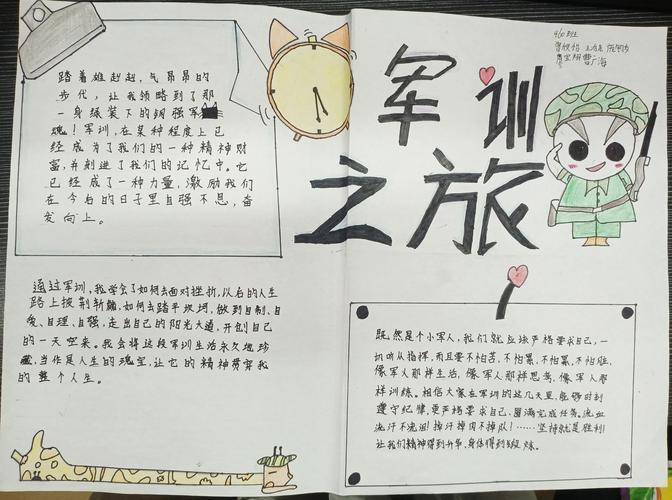 军训
之旅
踏着雄赳赳，气昂昂的
步代，让我领略到了那
一身绿装下的钢强军
魂！军训，在某种程度上已
经成为了我们的一种精神财
富，并刻进了我们的记忆中。它
已经成了一种力量，激励我们
在今后的日子里自强不息，奋
发向上。
通过军训，我学会了如何去面对挫折，以后的人生
路上披荆斩棘，如何去踏平坎坷，做到自制、自
爱、自理、自强，走出自己的阳光大道，开创自己
的一天空来。我会将这段军训生活永久地珍
藏，当作是人生的瑰宝，让它的精神贯穿我
的整个人生。
既然是个小军人，我们就应该严格要求自己，一
切听从指挥，而且要不怕苦、不怕累、不怕脏，
像军人那样生活，像军人那样思考，像军人那
样训练。相信大家在军训的这几天里，能够时刻
遵守纪律，更严格要求自己，圆满完成任务。流血
流汗不流泪！掉汗掉肉不掉队！……坚持就是胜利！
让我们精神得到升华，身体得到锻炼。